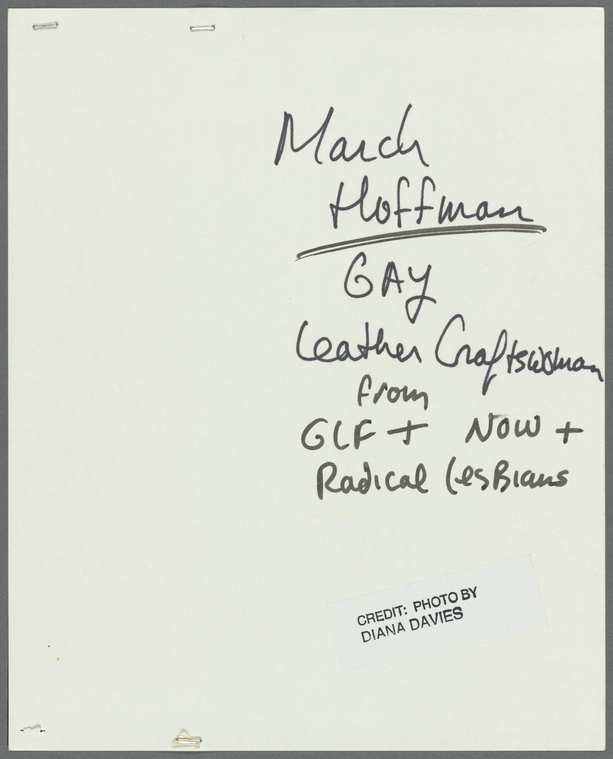 March
Hoffman
GAY
Leather Craftswoman
from
GLF + NOW +
Radical Lesbians
CREDIT: PHOTO BY
DIANA DAVIES